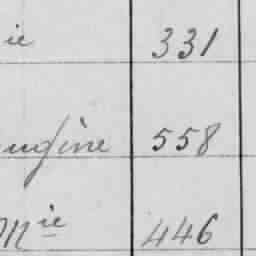 ie 331
ugène 558
Mie 446